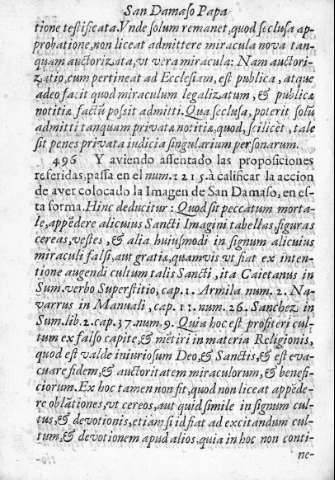 San Damaso Papa
tione testificata. Vnde solum remanet, quod seclusa ap-
probatione, non liceat admittere miracula nova tan-
quam auctorizata, vt vera miracula: Nam auctori-
zatio, cum pertineat ad Ecclesiam, est publica, atque
adeo facit quod miraculum legalizatum, & publicæ
notitiæ factũ possit admitti. Qua seclusa, poterit solũ
admitti tanquam privatæ notitiæ, quod, scilicèt, tale
sit penes privata iudicia singularium personarum.
496 Y aviendo assentado las proposiciones
referidas, passa en el num. 1215. à calificar la accion
de aver colocado la Imagen de San Damaso, en es-
ta forma. Hinc deducitur: Quod sit peccatum morta-
le, appẽdere alicuius Sancti Imagini tabellas, figuras
cereas, vestes, & alia huiusmodi in signum alicuius
miraculi falsi, aut gratiæ, quamvis vt fiat ex inten-
tione augendi cultum talis Sancti, ita Caietanus in
Sum. verbo Superstitio, cap. 1. Armila num. 2. Na-
varrus in Manuali, cap. 11. num. 26. Sanchez in
Sum. lib. 2. cap. 37. num. 9. Quia hoc est profiteri cul-
tum ex falso capite, & mẽtiri in materia Religionis,
quod est valde iniuriosum Deo, & Sanctis, & est eva-
cuare fidem, & auctoritatem miraculorum, & benefi-
ciorum. Ex hoc tamen non fit, quod non liceat appẽde-
re oblationes, vt cereos, aut quid simile in signum cul-
tus, & devotionis, etiam si id fiat ad excitandum cul-
tum, & devotionem apud alios, quia in hoc non conti-
ne-